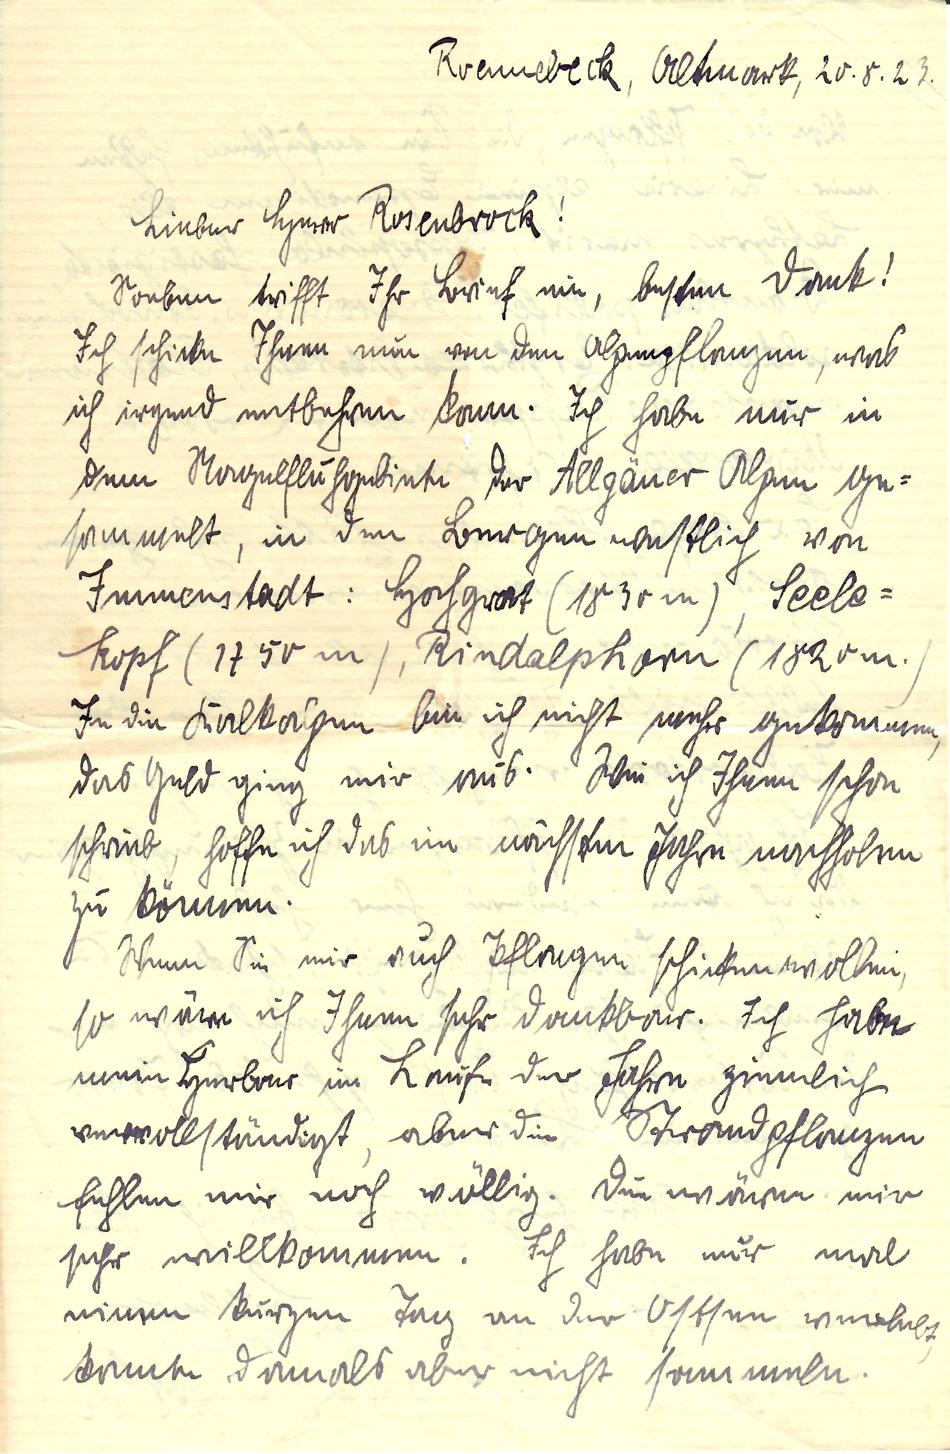 Roennebeck, Altmark, 20.8.23.
Lieber Herr Rosenbrock!
Soeben trifft Ihr Brief ein, besten Dank!
Ich schicke Ihnen nun von den Alpenpflanzen, was
ich irgend entbehren kann. Ich habe nur in
dem Nagelfluhgebiete der Allgäuer Alpen ge=
sammelt, in den Bergen westlich von
Immenstadt: Hochgrat (1830 m), Seele=
kopf (1750 m), Rindalphorn (1820 m.)
In die Kalkalpen bin ich nicht mehr gekommen,
das Geld ging mir aus. Wie ich Ihnen schon
schrieb, hoffe ich das im nächsten Jahre nachholen
zu können.
Wenn Sie mir auch Pflanzen schicken wollen,
so wäre ich Ihnen sehr dankbar. Ich habe
mein Herbar im Laufe der Jahre ziemlich
vervollständigt, aber die Strandpflanzen
fehlen mir noch völlig. Die wären mir
sehr willkommen. Ich habe nur mal
einen kurzen Tag an der Ostsee verlebt,
konnte damals aber nicht sammeln.